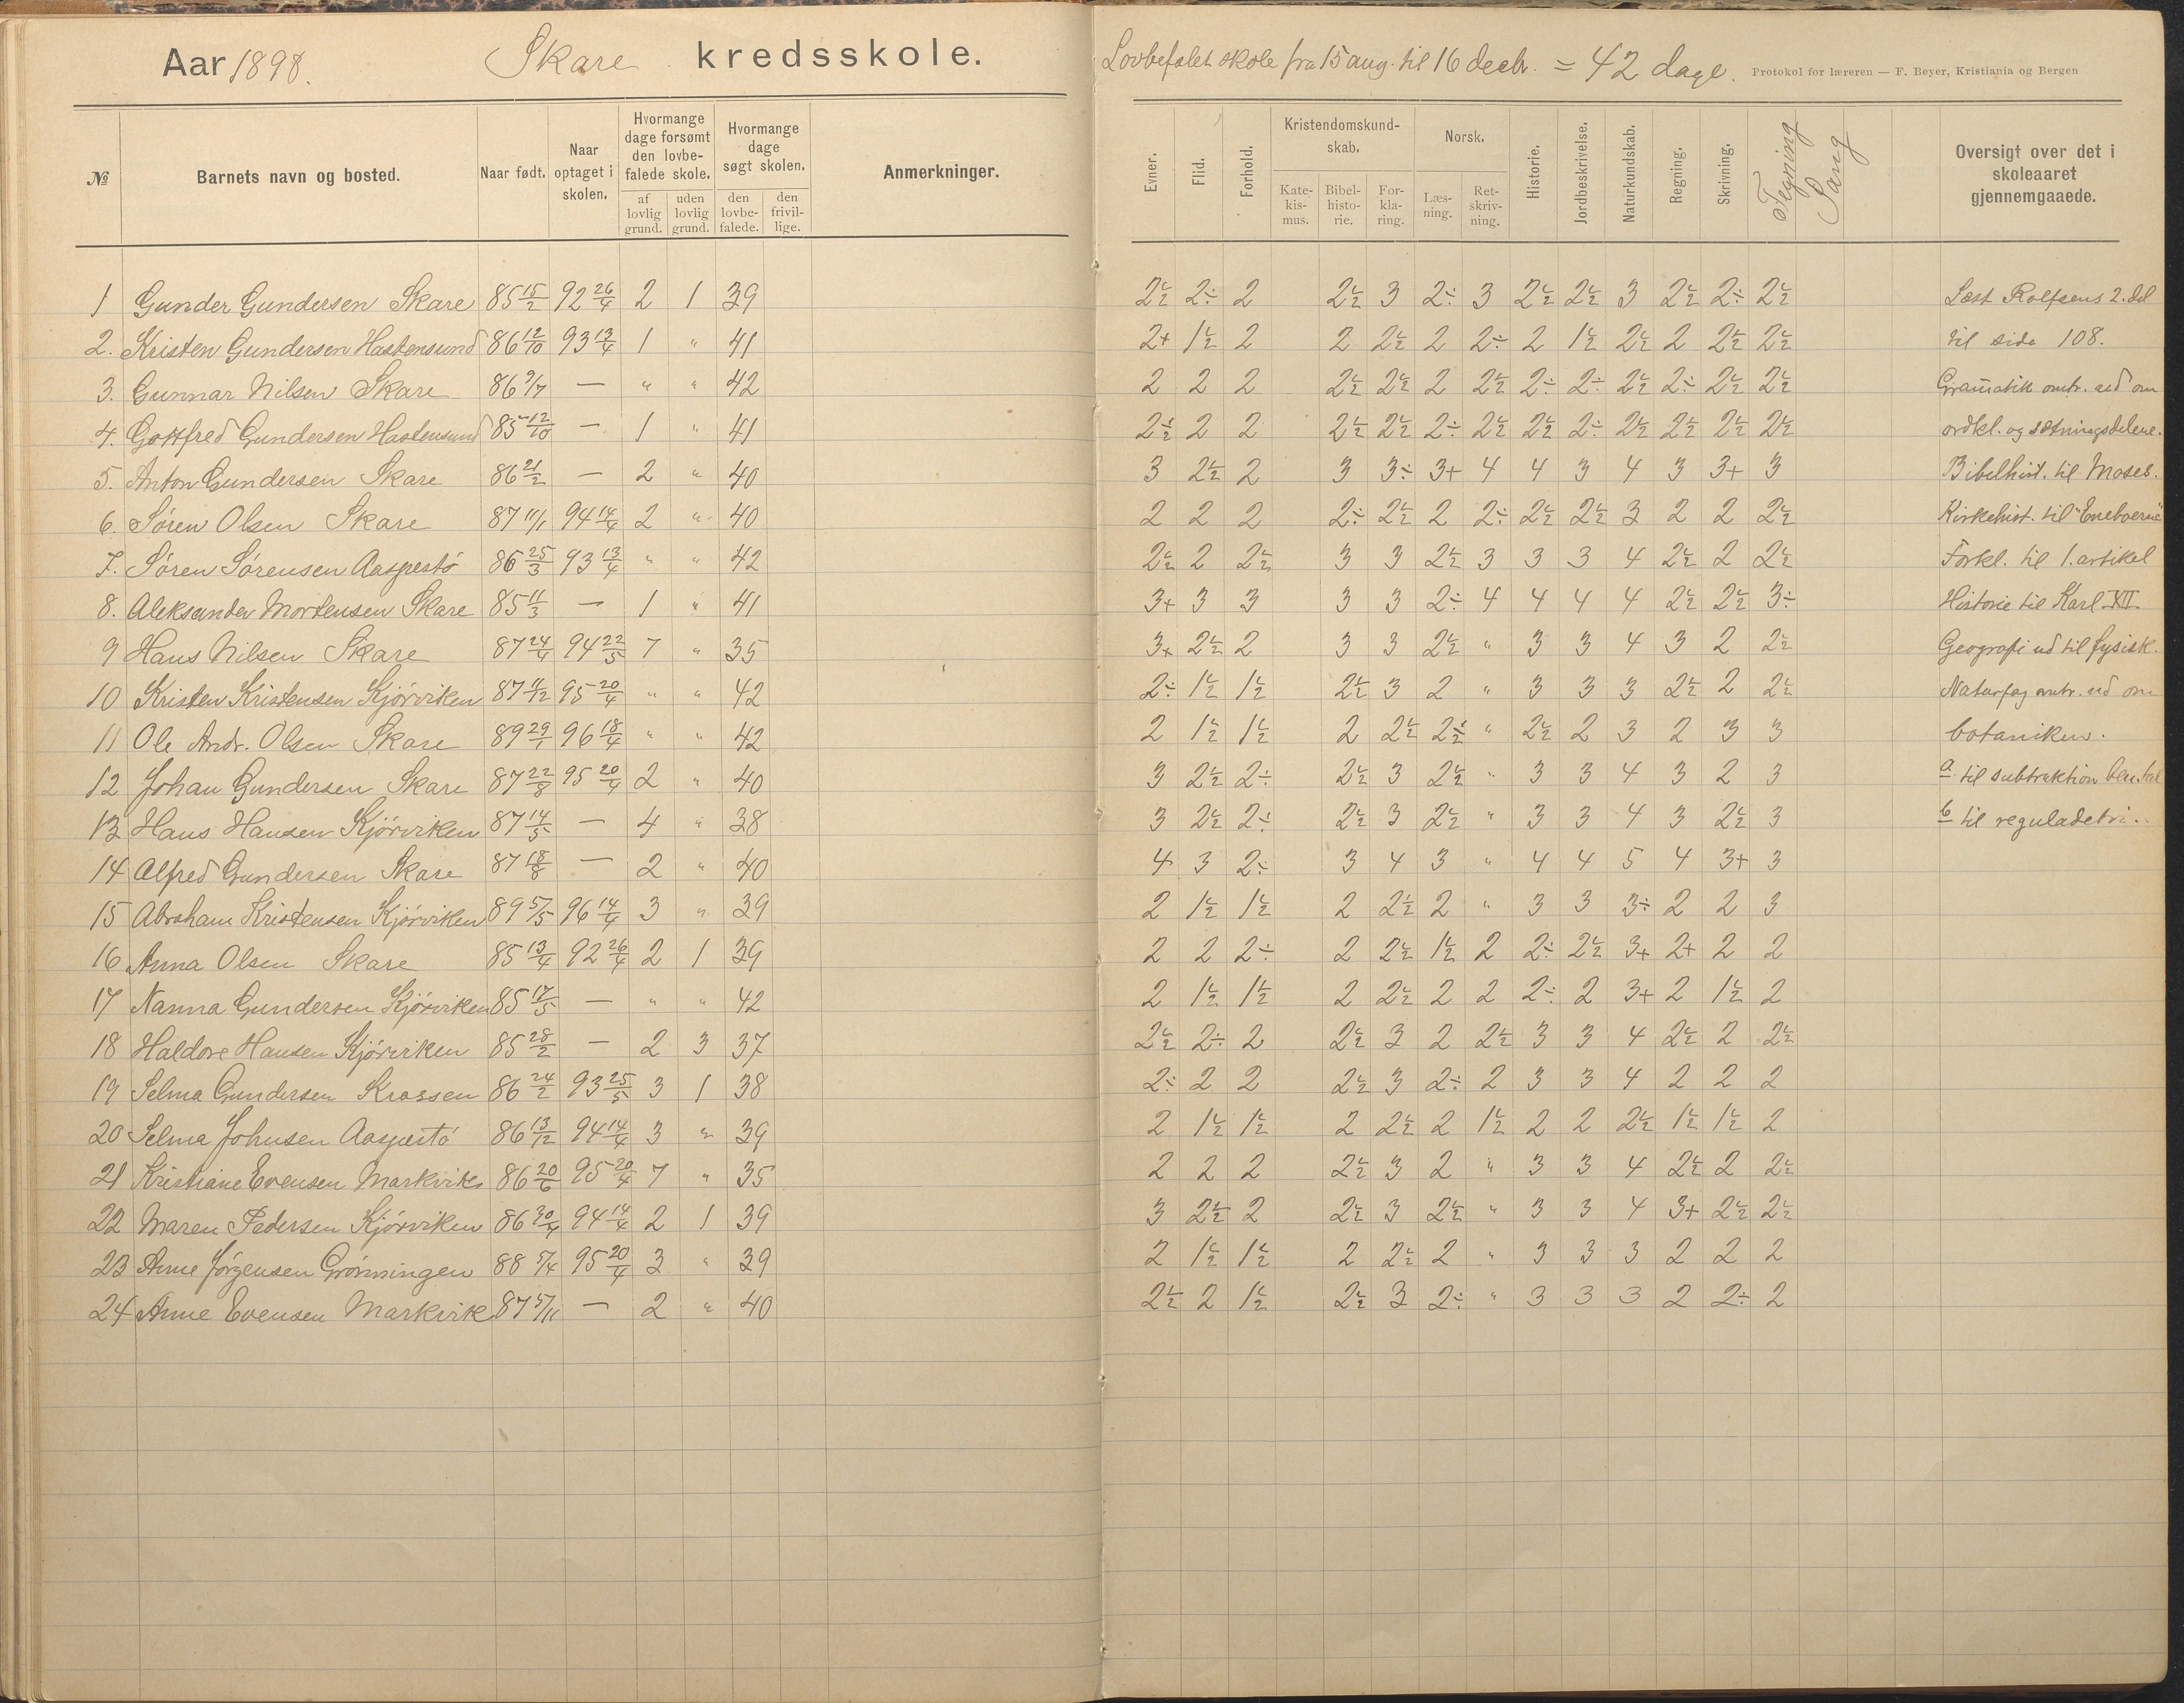 Aar 1898. Skare kredsskole.
Lovbefalet skole fra 15 aug. til 16 decbr. = 42 dage. Protokol for læreren — F. Beyer, Kristiania og Bergen
№ Barnets navn og bosted. Naar født. Naar optaget i skolen. Hvormange dage forsømt den lovbefalede skole. af lovlig grund. uden lovlig grund. Hvormange dage søgt skolen. den lovbefalede. den frivillige. Anmerkninger.
Evner. Flid. Forhold. Kristendomskundskab. Katekismus. Bibelhistorie. Forklaring. Norsk. Læsning. Retskrivning. Historie. Jordbeskrivelse. Naturkundskab. Regning. Skrivning. Tegning Sang Oversigt over det i skoleaaret gjennemgaaede.
1 Gunder Gundersen Skare 85 15/2 92 26/4 2 1 39
2. Kristen Gundersen Hastensund 86 12/10 93 13/4 1 " 41
3. Gunnar Nilsen Skare 86 9/7 — " " 42
4. Gottfred Gundersen Hastensund 85 12/10 — 1 " 41
5. Anton Gundersen Skare 86 21/2 — 2 " 40
6. Søren Olsen Skare 87 11/1 94 14/4 2 " 40
7. Søren Sørensen Aaspestø 86 25/3 93 13/4 " " 42
8. Aleksander Mortensen Skare 85 11/3 — 1 " 41
9 Hans Nilsen Skare 87 24/4 94 22/5 7 " 35
10 Kristen Kristensen Kjørviken 87 11/12 95 20/4 " " 42
11 Ole Andr. Olsen Skare 89 29/1 96 18/4 " " 42
12 Johan Gundersen Skare 87 22/8 95 20/4 2 " 40
13 Hans Hansen Kjørviken 87 14/5 — 4 " 38
14 Alfred Gundersen Skare 87 18/8 — 2 " 40
15 Abraham Kristensen Kjørviken 89 5/5 96 14/4 3 " 39
16 Anna Olsen Skare 85 13/4 92 26/4 2 1 39
17 Nanna Gundersen Kjørviken 85 17/5 — " " 42
18 Haldore Hansen Kjørviken 85 28/2 — 2 3 37
19 Selma Gundersen Krossen 86 24/2 93 25/5 3 1 38
20 Selma Johnsen Aaspestø 86 13/12 94 14/4 3 " 39
21 Kristiane Evensen Markvik 86 20/6 95 20/4 7 " 35
22 Maren Pedersen Kjørviken 86 30/4 94 14/4 2 1 39
23 Anne Jørgensen Grønningen 88 5/4 95 20/4 3 " 39
24 Anne Evensen Markvik 87 5/11 — 2 " 40
2½ 2÷ 2 2½ 3 2÷ 3 2½ 2½ 3 2½ 2÷ 2½ Læst Rolfsens 2. del
2+ 1½ 2 2 2½ 2 2÷ 2 1½ 2½ 2 2½ 2½ til side 108.
2 2 2 2½ 2½ 2 2½ 2÷ 2÷ 2½ 2÷ 2½ 2½ Gramatik omtr. ud om
2½ 2 2 2½ 2½ 2÷ 2½ 2½ 2÷ 2½ 2½ 2½ 2½ ordkl. og sætningsdelene.
3 2½ 2 3 3÷ 3+ 4 4 3 4 3 3+ 3 Bibelhist. til Moses.
2 2 2 2÷ 2½ 2 2÷ 2½ 2½ 3 2 2 2½ Kirkehist. til "Eneboerne"
2½ 2 2½ 3 3 2½ 3 3 3 4 2½ 2 2½ Forkl. til 1. artikel
3+ 3 3 3 3 2÷ 4 4 4 4 2½ 2½ 3÷ Historie til Karl XII
3+ 2½ 2 3 3 2½ " 3 3 4 3 2 2½ Geografi ud til fysisk.
2÷ 1½ 1½ 2½ 3 2 " 3 3 3 2½ 2 2½ Naturfag omtr. ud om
2 1½ 1½ 2 2½ 2½ " 2½ 2 3 2 3 3 botaniken.
3 2½ 2÷ 2½ 3 2½ " 3 3 4 3 2 3 a til subtraktion
3 2½ 2÷ 2½ 3 2½ " 3 3 4 3 2½ 3 b til reguladetri.
4 3 2÷ 3 4 3 " 4 4 5 4 3+ 3
2 1½ 1½ 2 2½ 2 " 3 3 3÷ 2 2 3
2 2 2÷ 2 2½ 1½ 2 2÷ 2½ 3+ 2+ 2 2
2 1½ 1½ 2 2½ 2 2 2÷ 2 3+ 2 1½ 2
2½ 2÷ 2 2½ 3 2 2½ 3 3 4 2½ 2 2½
2÷ 2 2 2½ 3 2÷ 2 3 3 4 2 2 2
2 1½ 1½ 2 2½ 2 1½ 2 2 2½ 1½ 1½ 2
2 2 2 2½ 3 2 " 3 3 4 2½ 2 2½
3 2½ 2 2½ 3 2½ " 3 3 4 3+ 2½ 2½
2 1½ 1½ 2 2½ 2 " 3 3 3 2 2 2
2½ 2 1½ 2½ 3 2÷ " 3 3 3 2 2÷ 2